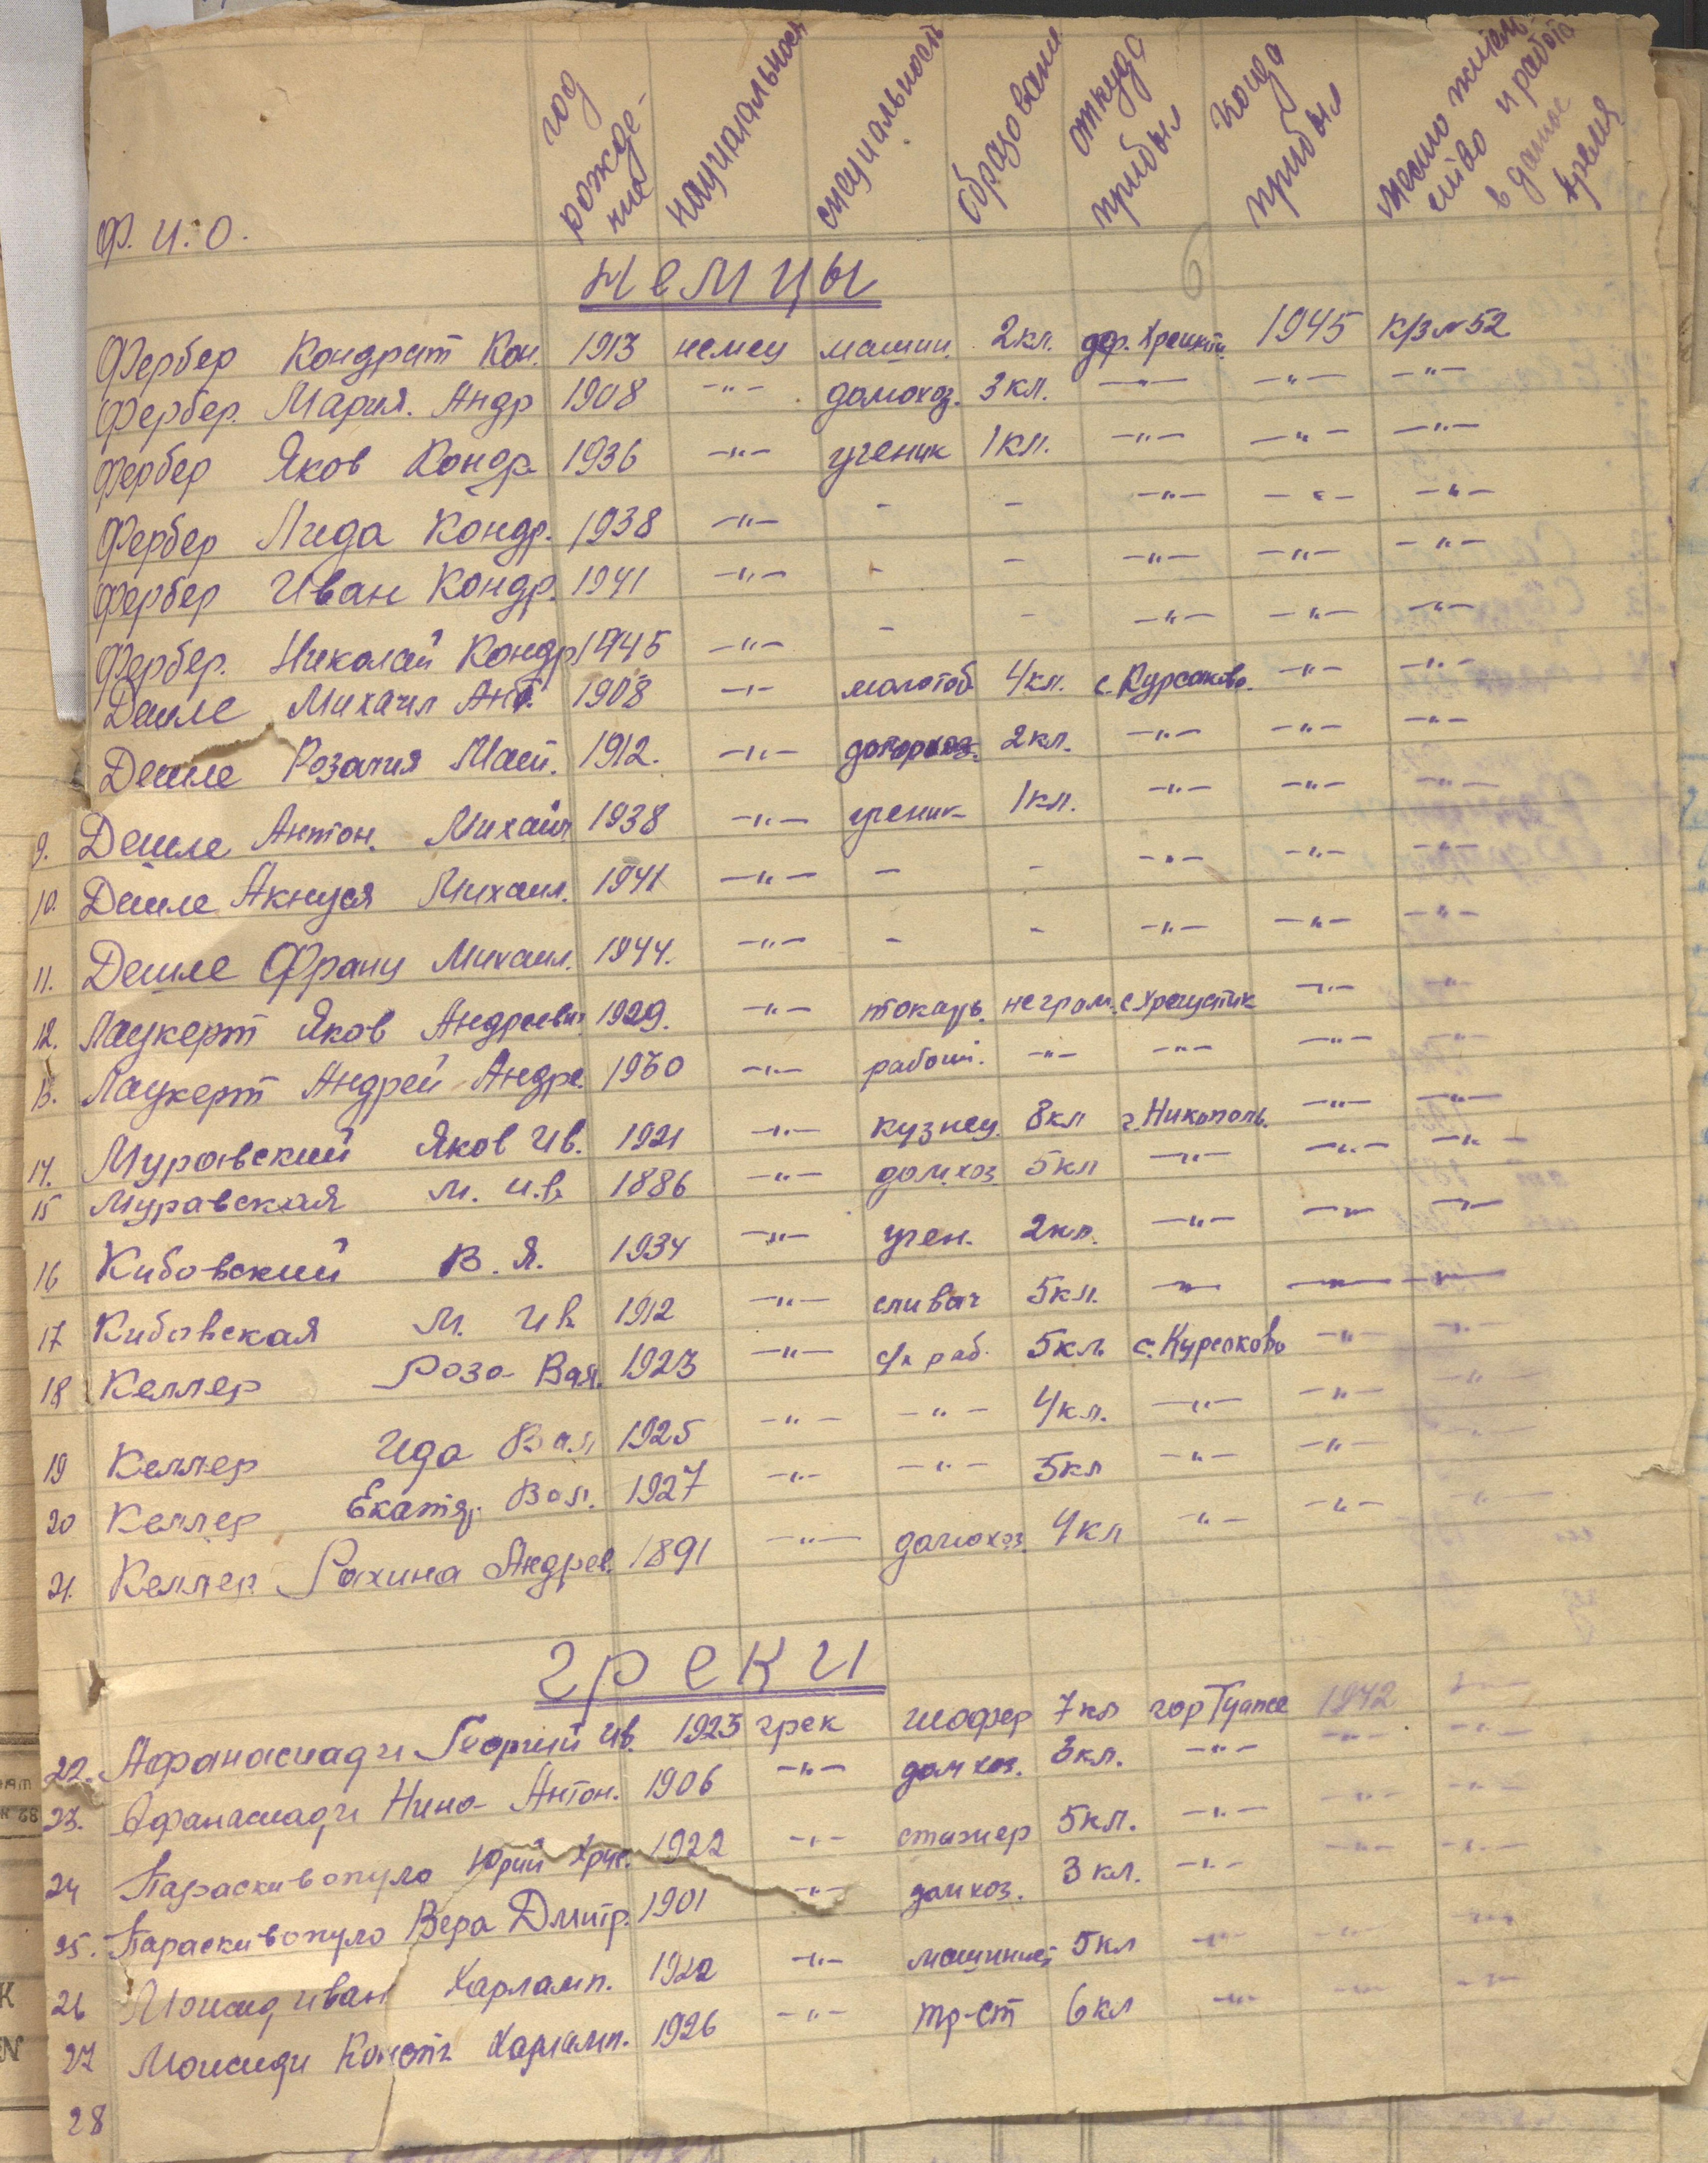 Ф. И. О. год рожде-ние национальность специальность образование откуда прибыл когда прибыл место жительство и работа в данное время
немцы
Фербер Кондрат Кон. 1913 немец машин. 2 кл. дер. 1945 к/з № 52
Фербер. Мария. Андр 1908 -"- домохоз. 3 кл. -"- -"- -"-
Фербер Яков Кондр. 1936 -"- ученик 1 кл. -"- -"- -"-
Фербер Лида Кондр. 1938 -"- - - -"- -"- -"-
Фербер Иван Кондр. 1941 -"- - - -"- -"- -"-
Фербер. Николай Кондр 1945 -"- - - -"- -"- -"-
Михаил Ант. 1908 -"- молотоб 4 кл. с. Курсаково. -"- -"-
Розалия 1912. -"- 2 кл. -"- -"- -"-
9. Антон. Михаил 1938 -"- ученик 1 кл. -"- -"- -"-
10. Михаил. 1941 -"- - - -"- -"- -"-
11. Франц Михаил. 1944. -"- - - -"- -"- -"-
12. Лаукерт Яков Андреевич 1929. -"- токарь. неграм. с. Хрещатик -"- -"-
13. Лаукерт Андрей Андре. 1930 -"- рабочий. -"- -"- -"- -"-
14. Муравский Яков Ив. 1921 -"- кузнец. 8 кл г. Никополь. -"- -"-
15 Муравская М. Ив. 1886 -"- дом.хоз. 5 кл -"- -"- -"-
16 Кибовский В. Я. 1934 -"- учен. 2 кл. -"- -"- -"-
17 Кибовская М. Ив. 1912 -"- 5 кл. -"- -"- -"-
18 Келлер Роза Вал. 1923 -"- с/х раб. 5 кл. с. Курсаково -"- -"-
19 Келлер Ида Вал 1925 -"- -"- 4 кл. -"- -"- -"-
20 Келлер Екатер. Вал. 1927 -"- -"- 5 кл -"- -"- -"-
21. Келлер Андреев. 1891 -"- домохоз. 4 кл -"- -"- -"-
греки
22. Афанасиади Георгий Ив. 1923 грек шофер 7 кл гор Туапсе 1942 -"-
23. Афанасиади Нина Антон. 1906 -"- дом хоз. 3 кл. -"- -"- -"-
24 Параскивопуло Юрий Хрис. 1922 -"- стажер 5 кл. -"- -"- -"-
25. Параскивопуло Вера Дмитр. 1901 -"- дом хоз. 3 кл. -"- -"- -"-
26 Иван Харламп. 1922 -"- машинист 5 кл -"- -"- -"-
27 Моисиди Конст. Харламп. 1926 -"- тр-ст 6 кл -"- -"- -"-
28